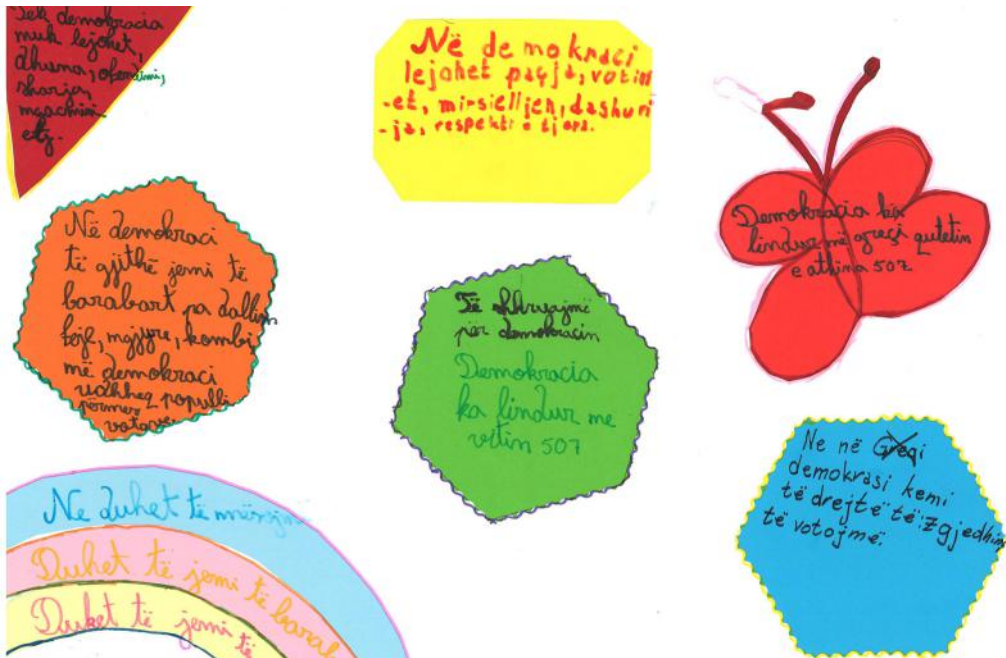 Tek demokracia
nuk lejohet,
dhuna, ofendimi,
sharja,
ngacmimi
etj.
Në demokraci
lejohet paqja, votim
-et, mirsielljen, dashuri
-ja, respekti e tjera.
Demokracia ka
lindur në greqi qutetin
e athina 507
Në demokraci
të gjithë jemi të
barabart pa dallim
feje, ngjyre, kombi,
në demokraci
udhheq populli
përmes
votave.
Të shkruajmë
për demokracin
Demokracia
ka lindur me
vitin 507
Ne në Greqi
demokrasi kemi
të drejtë të zgjedhim
të votojmë.
Ne duhet të mësojm
Duhet të jemi të barab
Duhet të jemi të